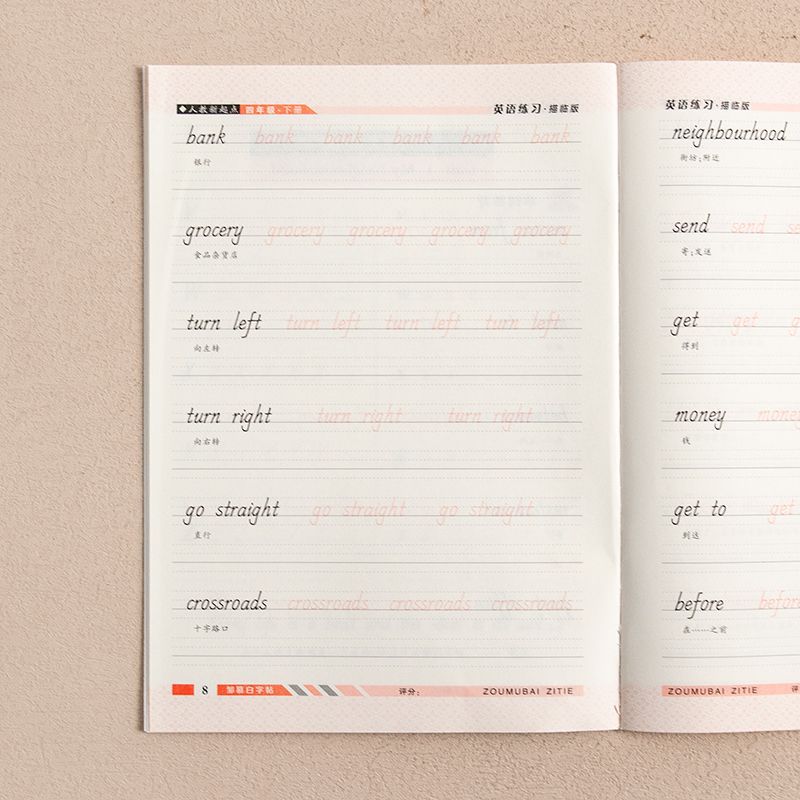 ◆人教新起点 四年级·下册 英语练习·描临版
bank bank bank bank bank bank
银行
grocery grocery grocery grocery grocery
食品杂货店
turn left turn left turn left turn left
向左转
turn right turn right turn right
向右转
go straight go straight go straight
直行
crossroads crossroads crossroads crossroads
十字路口
8 邹慕白字帖 评分: ZOUMUBAI ZITIE
英语练习·描临版
neighbourhood
街坊;附近
send send
寄;发送
get get
得到
money money
钱
get to get
到达
before before
在……之前
ZOUMUBAI ZITIE